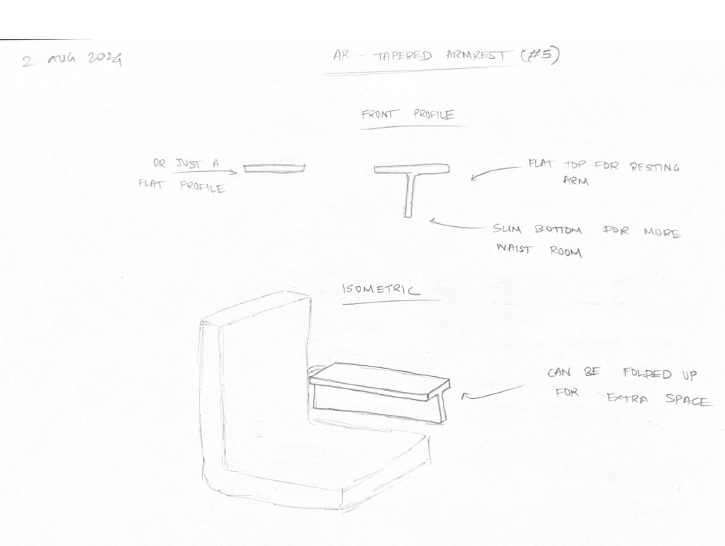 2 AUG 2024
AR - TAPERED ARMREST (#5)
FRONT PROFILE
OR JUST A
FLAT PROFILE
FLAT TOP FOR RESTING
ARM
SLIM BOTTOM FOR MORE
WAIST ROOM
ISOMETRIC
CAN BE FOLDED UP
FOR EXTRA SPACE